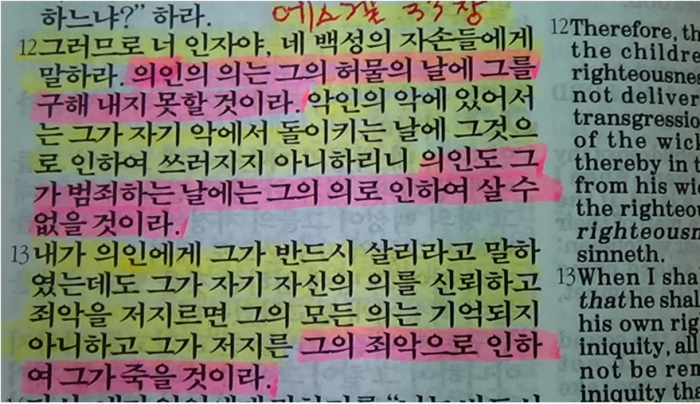 하느냐?" 하라.
에스겔 33장
12그러므로 너 인자야, 네 백성의 자손들에게
말하라. 의인의 의는 그의 허물의 날에 그를
구해 내지 못할 것이라. 악인의 악에 있어서
는 그가 자기 악에서 돌이키는 날에 그것으
로 인하여 쓰러지지 아니하리니 의인도 그
가 범죄하는 날에는 그의 의로 인하여 살 수
없을 것이라.
13내가 의인에게 그가 반드시 살리라고 말하
였는데도 그가 자기 자신의 의를 신뢰하고
죄악을 저지르면 그의 모든 의는 기억되지
아니하고 그가 저지른 그의 죄악으로 인하
여 그가 죽을 것이라.
12Therefore, th
the childre
righteousne
not deliver
transgressio
of the wick
thereby in t
from his wi
the righteo
righteousn
sinneth.
13When I sha
that he shal
his own rig
iniquity, all
not be ren
iniquity tha